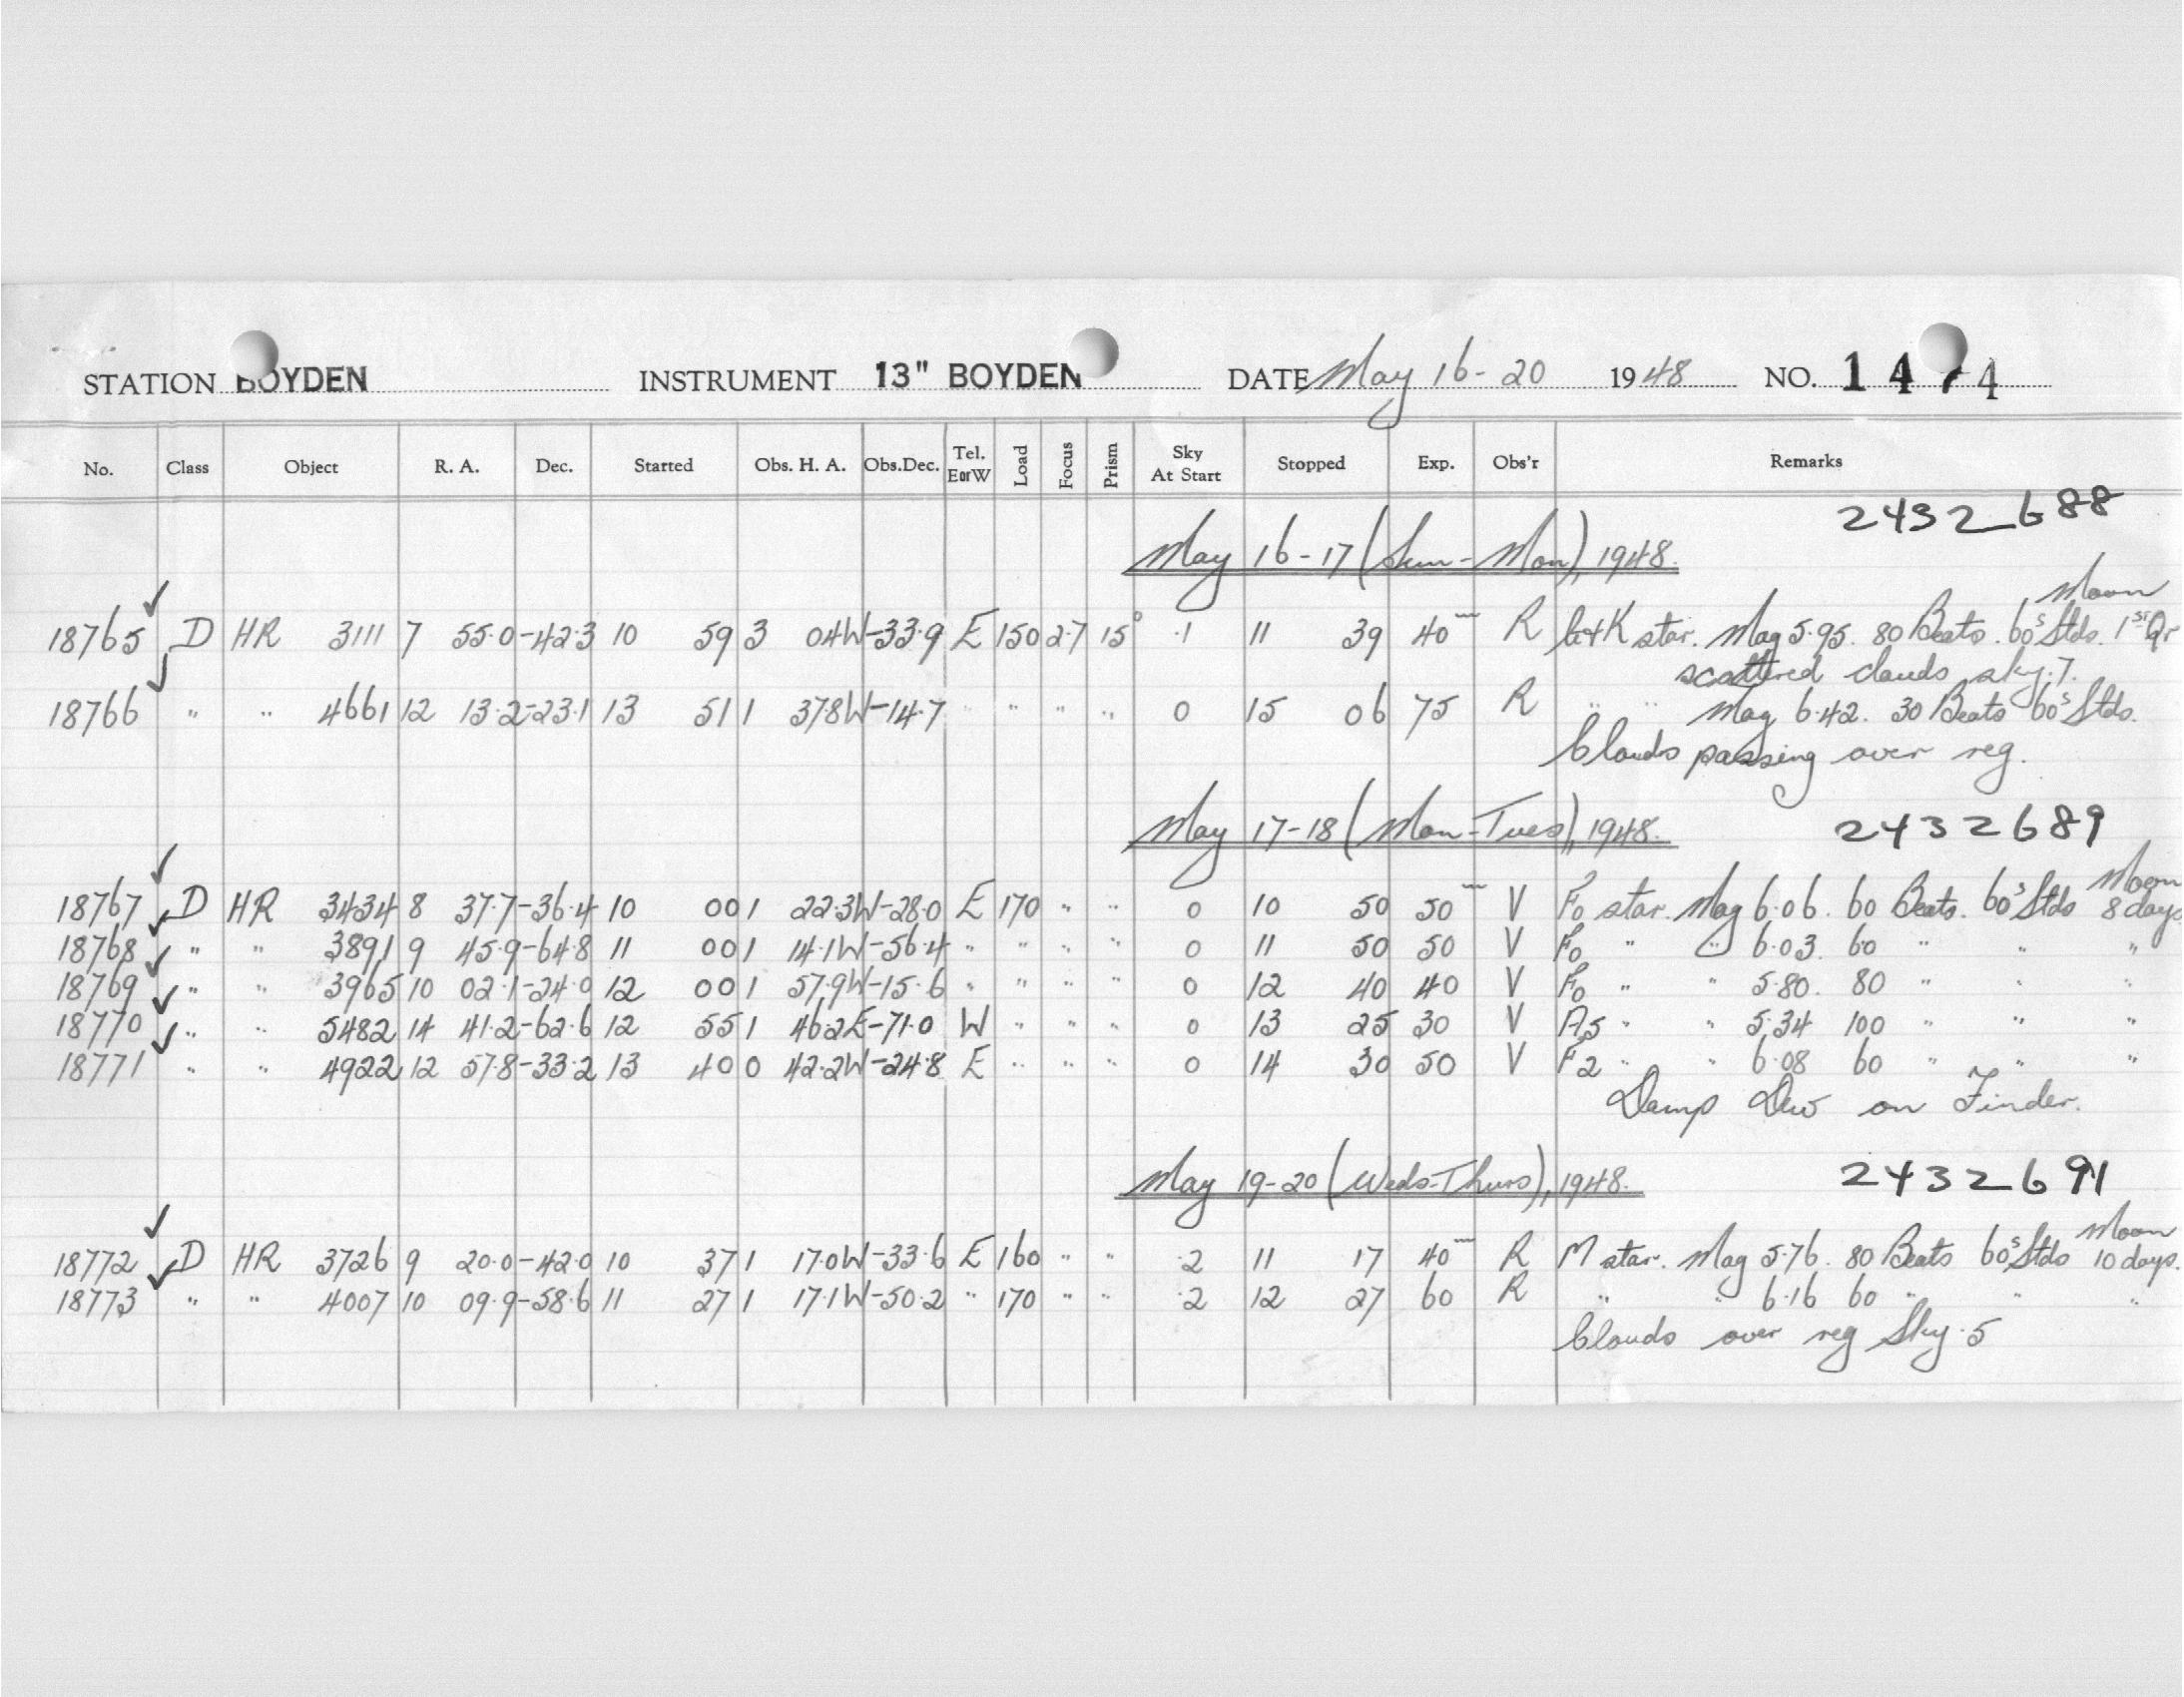 STATION BOYDEN INSTRUMENT 13" BOYDEN DATE May 16-20 1948 NO. 14 4
No. Class Object R. A. Dec. Started Obs. H. A. Obs.Dec. Tel. E or W Load Focus Prism Sky At Start Stopped Exp. Obs'r Remarks
2432688
May 16-17 (Sun-Mon), 1948.
Moon
18765 D HR 3111 7 55.0 -42.3 10 59 3 04W -33.9 E 150 2.7 15° .1 11 39 40 R star. Mag 5.95. 80 Beats. 60s Stds. 1st Qr
scattered clouds sky .7.
18766 " " 4661 12 13.2 -23.1 13 51 1 37.8W -14.7 " " " " 0 15 06 75 R " " Mag 6.42. 30 Beats 60s Stds.
Clouds passing over reg.
May 17-18 (Mon-Tues), 1948. 2432689
Moon
18767 D HR 3434 8 37.7 -36.4 10 00 1 22.3W -28.0 E 170 " " 0 10 50 50 V F0 star. Mag 6.06. 60 Beats. 60s Stds 8 days
18768 " " 3891 9 45.9 -64.8 11 00 1 14.1W -56.4 " " " " 0 11 50 50 V F0 " " 6.03. 60 " " "
18769 " " 3965 10 02.1 -24.0 12 00 1 57.9W -15.6 " " " " 0 12 40 40 V F0 " " 5.80. 80 " " "
18770 " " 5482 14 41.2 -62.6 12 55 1 46.2E -71.0 W " " " 0 13 25 30 V A5 " " 5.34 100 " " "
18771 " " 4922 12 57.8 -33.2 13 40 0 42.2W -24.8 E " " " 0 14 30 50 V F2 " " 6.08 60 " " "
Damp Dew on Finder.
May 19-20 (Weds-Thurs), 1948. 2432691
Moon
18772 D HR 3726 9 20.0 -42.0 10 37 1 17.0W -33.6 E 160 " " .2 11 17 40 R M star. Mag 5.76. 80 Beats 60s Stds 10 days.
18773 " " 4007 10 09.9 -58.6 11 27 1 17.1W -50.2 " 170 " " .2 12 27 60 R " " 6.16 60 " " "
Clouds over reg Sky .5